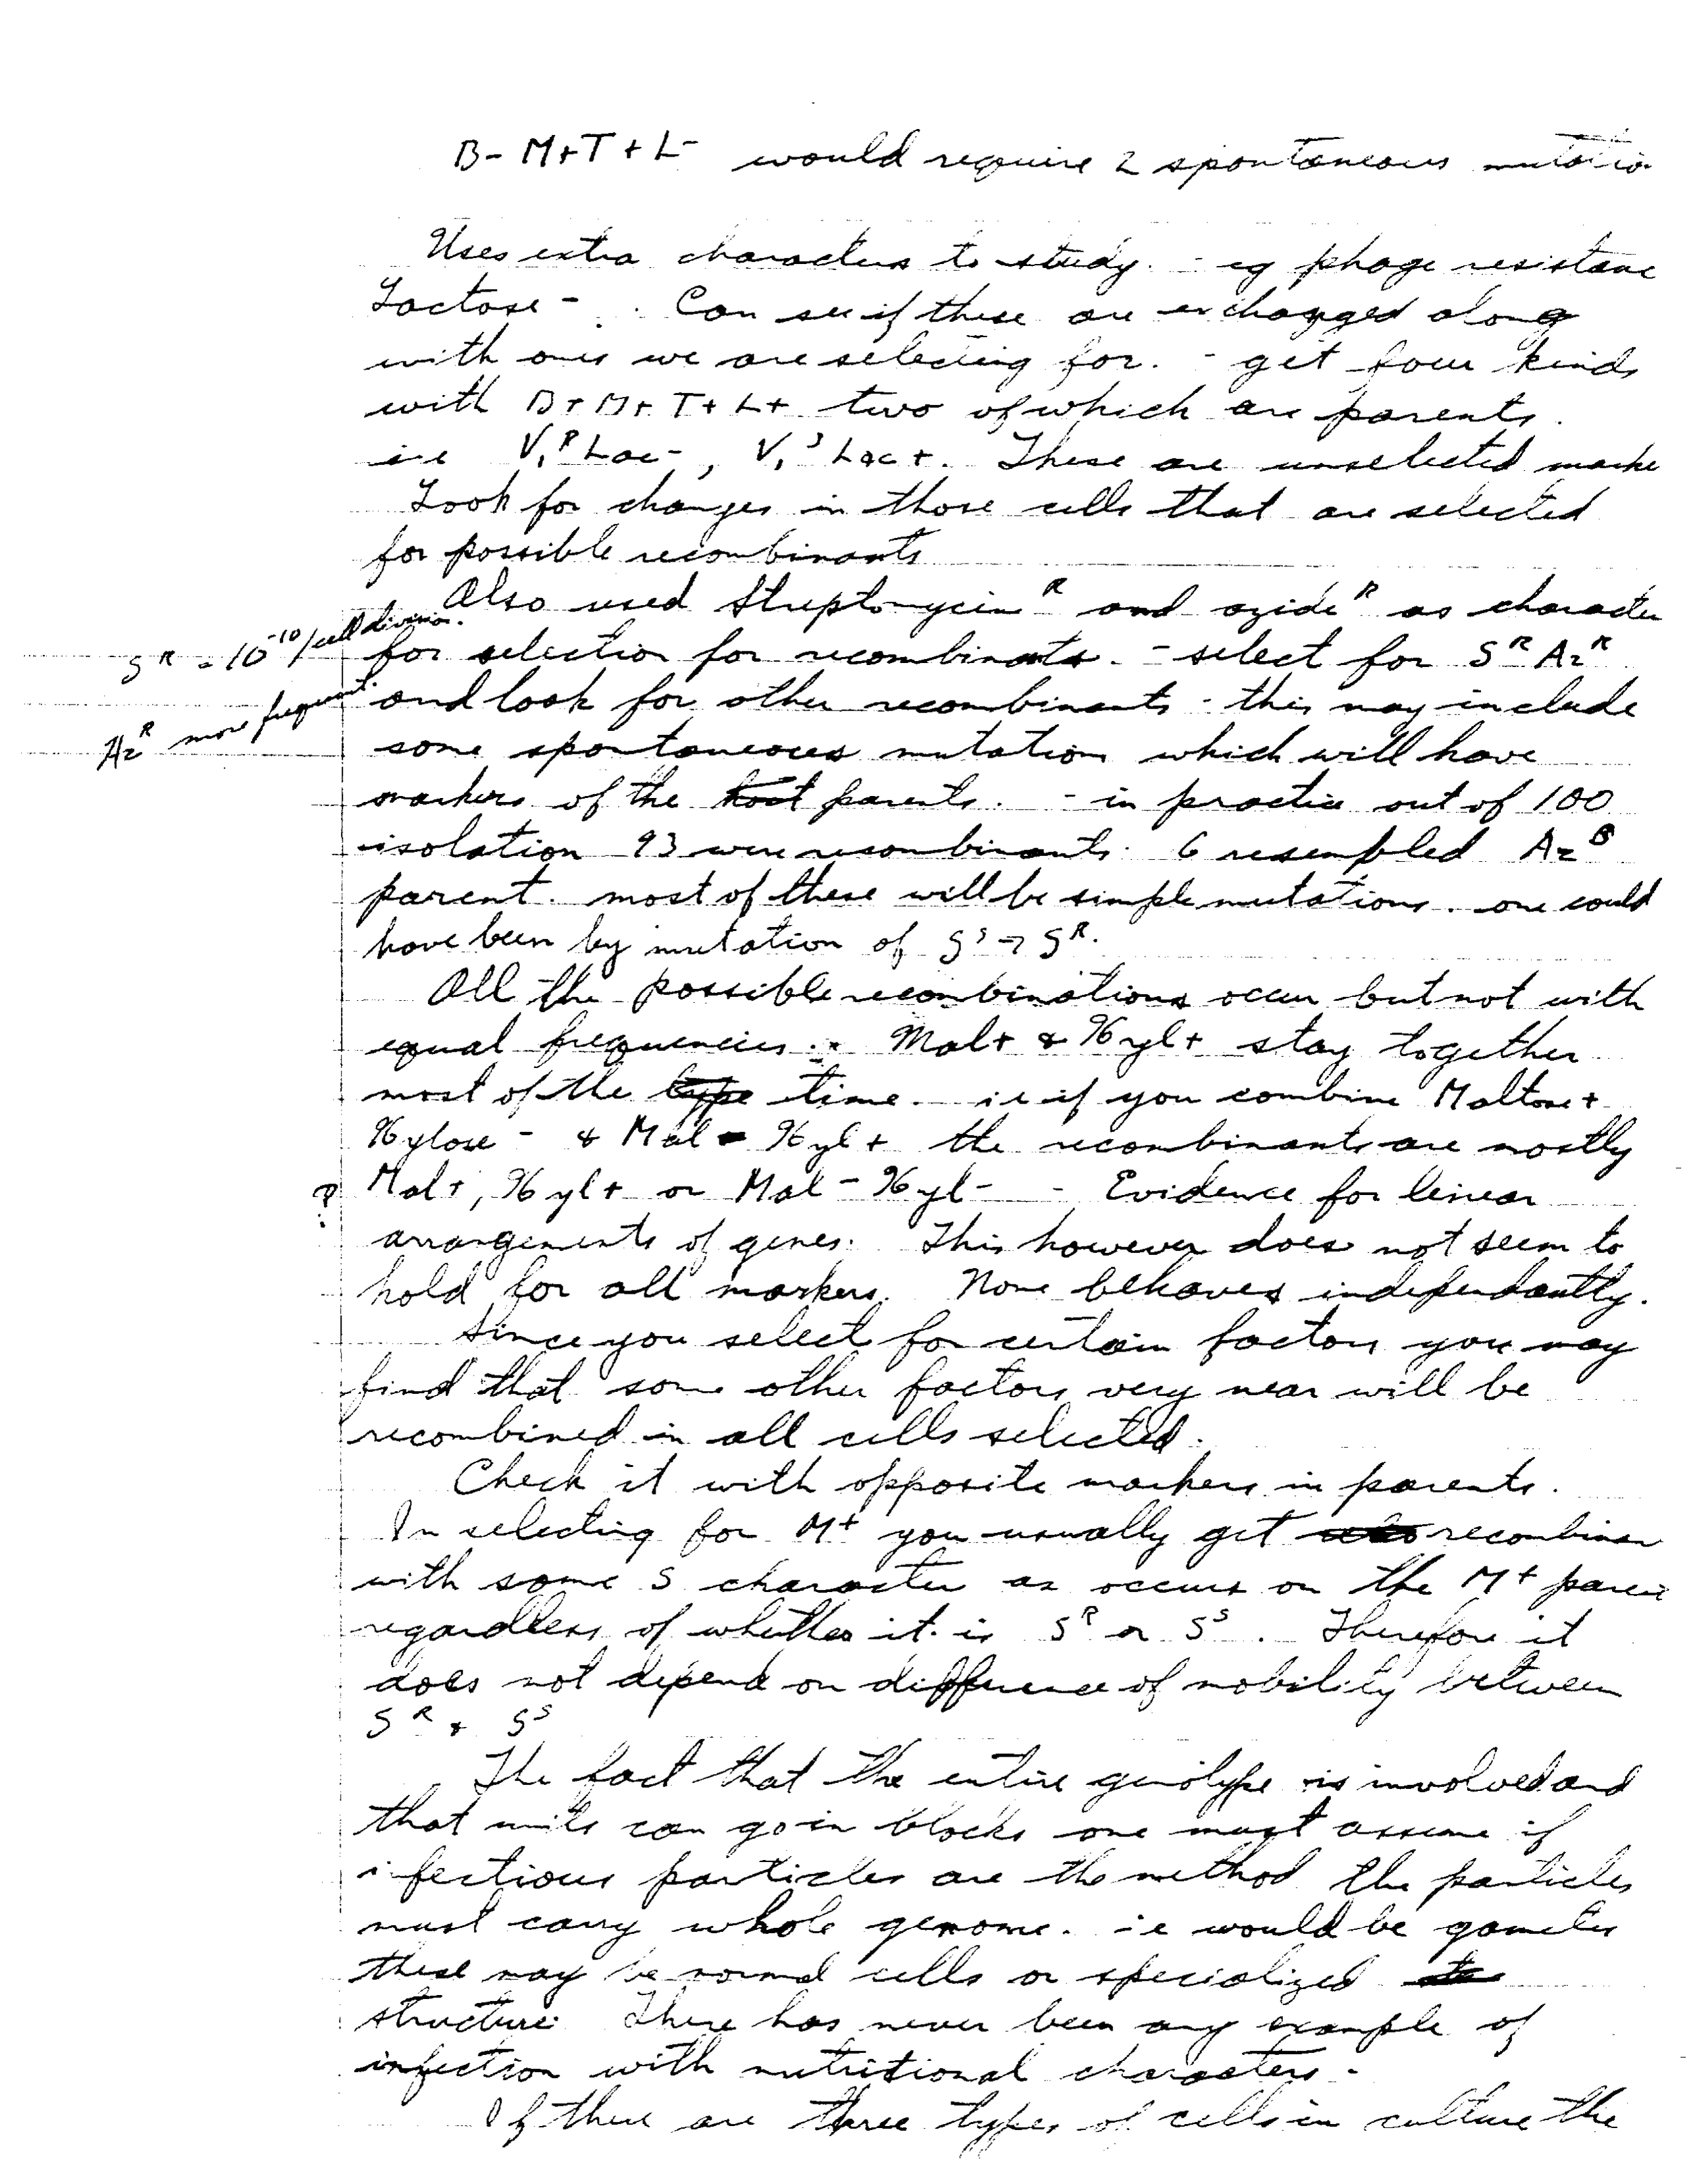 B- M+T+L- would require 2 spontaneous mutatio
Uses extra characters to study. - eg phage resistanc
Lactose - . Can see if these are exchanged along
with ones we are selecting for. - get four kinds
with B+M+T+L+ two of which are parents.
ie V₁ᴿ Lac-, V₁ˢ Lac+. These are unselected marke
Look for changes in those cells that are selected
for possible recombinants
Also used Streptomycinᴿ and azideᴿ as character
Sᴿ = 10⁻¹⁰/cell division.
for selection for recombinants. - select for Sᴿ Azᴿ
Azᴿ more frequent.
and look for other recombinants - this may include
some spontaneous mutations which will have
markers of the host parents. - in practice out of 100
isolation 93 were recombinants. 6 resembled Azˢ
parent. most of these will be simple mutations. one could
have been by mutation of Sˢ → Sᴿ.
All the possible recombinations occur but not with
equal frequencies. Mal+ & Xyl+ stay together
most of the type time. ie if you combine Maltose+
Xylose - & Mal - Xyl + the recombinants are mostly
? Mal+, Xyl+ or Mal - Xyl - - Evidence for linear
arrangements of genes. This however does not seem to
hold for all markers. None behaves independantly.
Since you select for certain factors you may
find that some other factors very near will be
recombined in all cells selected.
Check it with opposite markers in parents.
In selecting for M+ you usually get recombinan
with some S character as occurs on the M+ paren
regardless of whether it is Sᴿ or Sˢ. Therefore it
does not depend on difference of mobility between
Sᴿ & Sˢ
The fact that the entire genotype is involved and
that units can go in blocks one must assume if
ifectious particles are the method the particles
must carry whole genome. ie would be gametes
these may be normal cells or specialized
structure. There has never been any example of
infection with nutritional characters.
If there are three types of cells in culture the